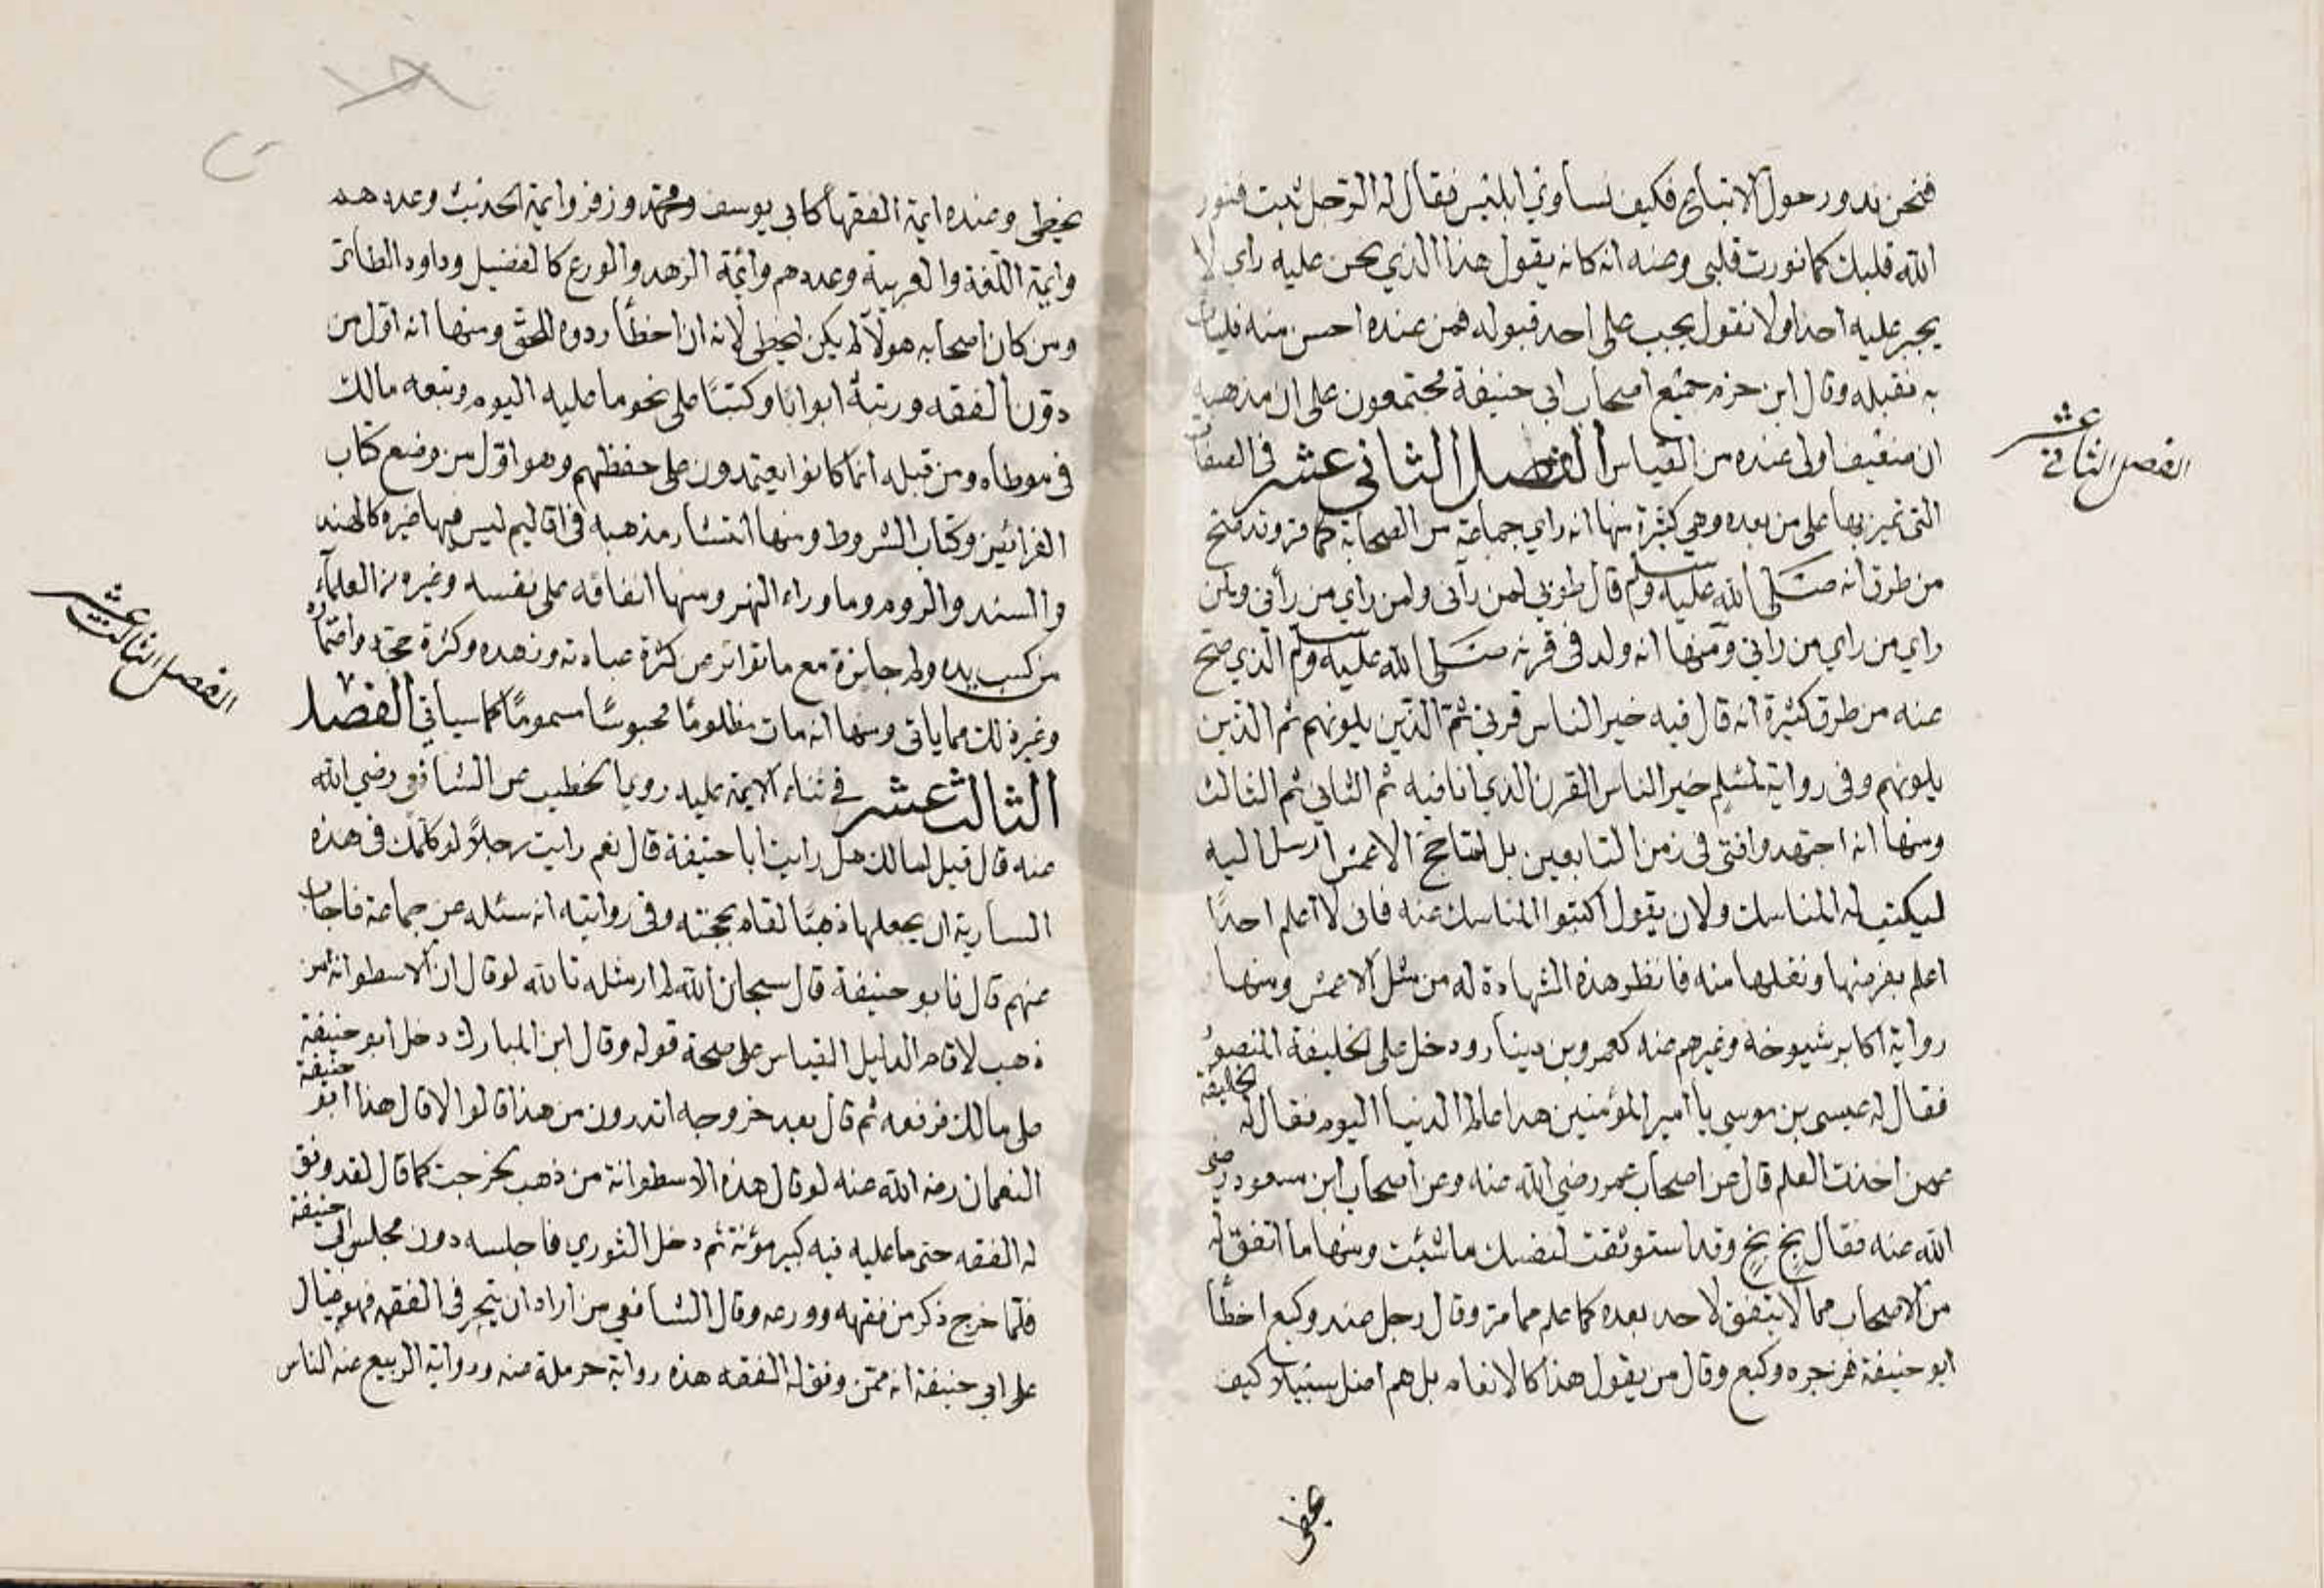 فنحن ندور حول الاتباع فكيف نساوي ابليس فقال له الرجل تبت فنور
الله قلبك كما نورت قلبي وعنه انه كان يقول هذا الذي نحن عليه راي لا
يجبر عليه احد ولا نقول يجب على احد قبوله فمن عنده احسن منه فليات
به نقبله وقال ابن حزم جميع اصحاب ابي حنيفة مجتمعون على ان مذهبه
ان ضعيف اولى عنده من القياس الفصل الثاني عشر في الصفات
الفصل الثاني عشر
التي تميز بها على من بعده وهي كثيرة منها انه راي جماعة من الصحابة كما مر وقد صح
من طرق انه صلى الله عليه وسلم قال طوبى لمن رآني ولمن راي من رأني ولمن
راي من راي من راني ومنها انه ولد في قرنه صلى الله عليه وسلم الذي صح
عنه من طرق كثيرة انه قال فيه خير الناس قرني ثم الذين يلونهم ثم الذين
يلونهم وفي رواية لمسلم خير الناس القرن الذي انا فيه ثم الثاني ثم الثالث
ومنها انه اجتهد وافتى في زمن التابعين بل لما حج الاعمش ارسل اليه
ليكتب له المناسك ولان يقول اكتبوا المناسك عنه فاني لا اعلم احدا
اعلم بفرضها ونفلها منه فانظر هذه الشهادة له من مثل الاعمش ومنها
رواية اكابر شيوخه وغيرهم عنه كعمرو بن دينار ودخل على الخليفة المنصور
فقال له عيسى بن موسي يا امير المؤمنين هذا عالم الدنيا اليوم فقال له الخليفة
عمن اخذت العلم قال عن اصحاب عمر رضي الله عنه وعن اصحاب ابن مسعود رضي
الله عنه فقال بخ بخ وقد استوثقت لنفسك ما شئت ومنها ما اتفق له
من الاصحاب مما لا يتفق لاحد بعده كما علم مما مر وقال رجل عند وكيع اخطأ
ابو حنيفة فزجره وكيع وقال من يقول هذا كالانعام بل هم اضل سبيلا كيف
يخطي
يخطي وعنده ايمة الفقهاء كابي يوسف ومحمد وزفر وايمة الحديث وعددهم
وايمة اللغة والعربية وعددهم وائمة الزهد والورع كالفضيل وداود الطائي
ومن كان اصحابه هولآ لم يكن ليخطي لانه ان اخطأ ردوه للحق ومنها انه اول من
دون الفقه ورتبه ابوابا وكتبا على نحو ما عليه اليوم وتبعه مالك
في موطاه ومن قبله انما كانوا يعتمدون على حفظهم وهو اول من وضع كتاب
الفرائض وكتاب الشروط ومنها انتشار مذهبه في اقاليم ليس فيها غيره كالهند
والسند والروم وما وراء النهر ومنها انفاقه على نفسه وغيره من العلمآء
من كسب يده ولم جائزة مع ما تواتر من كثرة عبادته وزهده وكثرة حجه واعتماره
وغير ذلك مما ياتي ومنها انه مات مظلوما محبوسا مسموما كما سياتي الفصل
الثالث عشر في ثناء الايمة عليه روي الخطيب عن الشافعي رضي الله
الفصل الثالث عشر
عنه قال قيل لمالك هل رايت ابا حنيفة قال نعم رايت رجلا لو كلمك في هذه
السارية ان يجعلها ذهبا لقام بحجته وفي روايته انه سئله عن جماعة فاجاب
عنهم قال فابو حنيفة قال سبحان الله لم ار مثله تالله لو قال ان الاسطوانة من
ذهب لاقام الدليل القياس على صحة قوله وقال ابن المبارك دخل ابو حنيفة
على مالك فرفعه ثم قال بعد خروجه اتدرون من هذا قالوا لا قال هذا ابو حنيفة
النعمان رضه الله عنه لو قال هذه الاسطوانة من ذهب لخرجت كما قال لقد وفق
له الفقه حتى ما عليه فيه كبير مؤنة ثم دخل الثوري فاجلسه دون مجلس ابي حنيفة
فلما خرج ذكر من فقهه وورعه وقال الشافعي من اراد ان يتبحر في الفقه فهو عيال
على ابي حنيفة انه ممن وفق له الفقه هذه رواية حرملة عنه ورواية الربيع عنه الناس